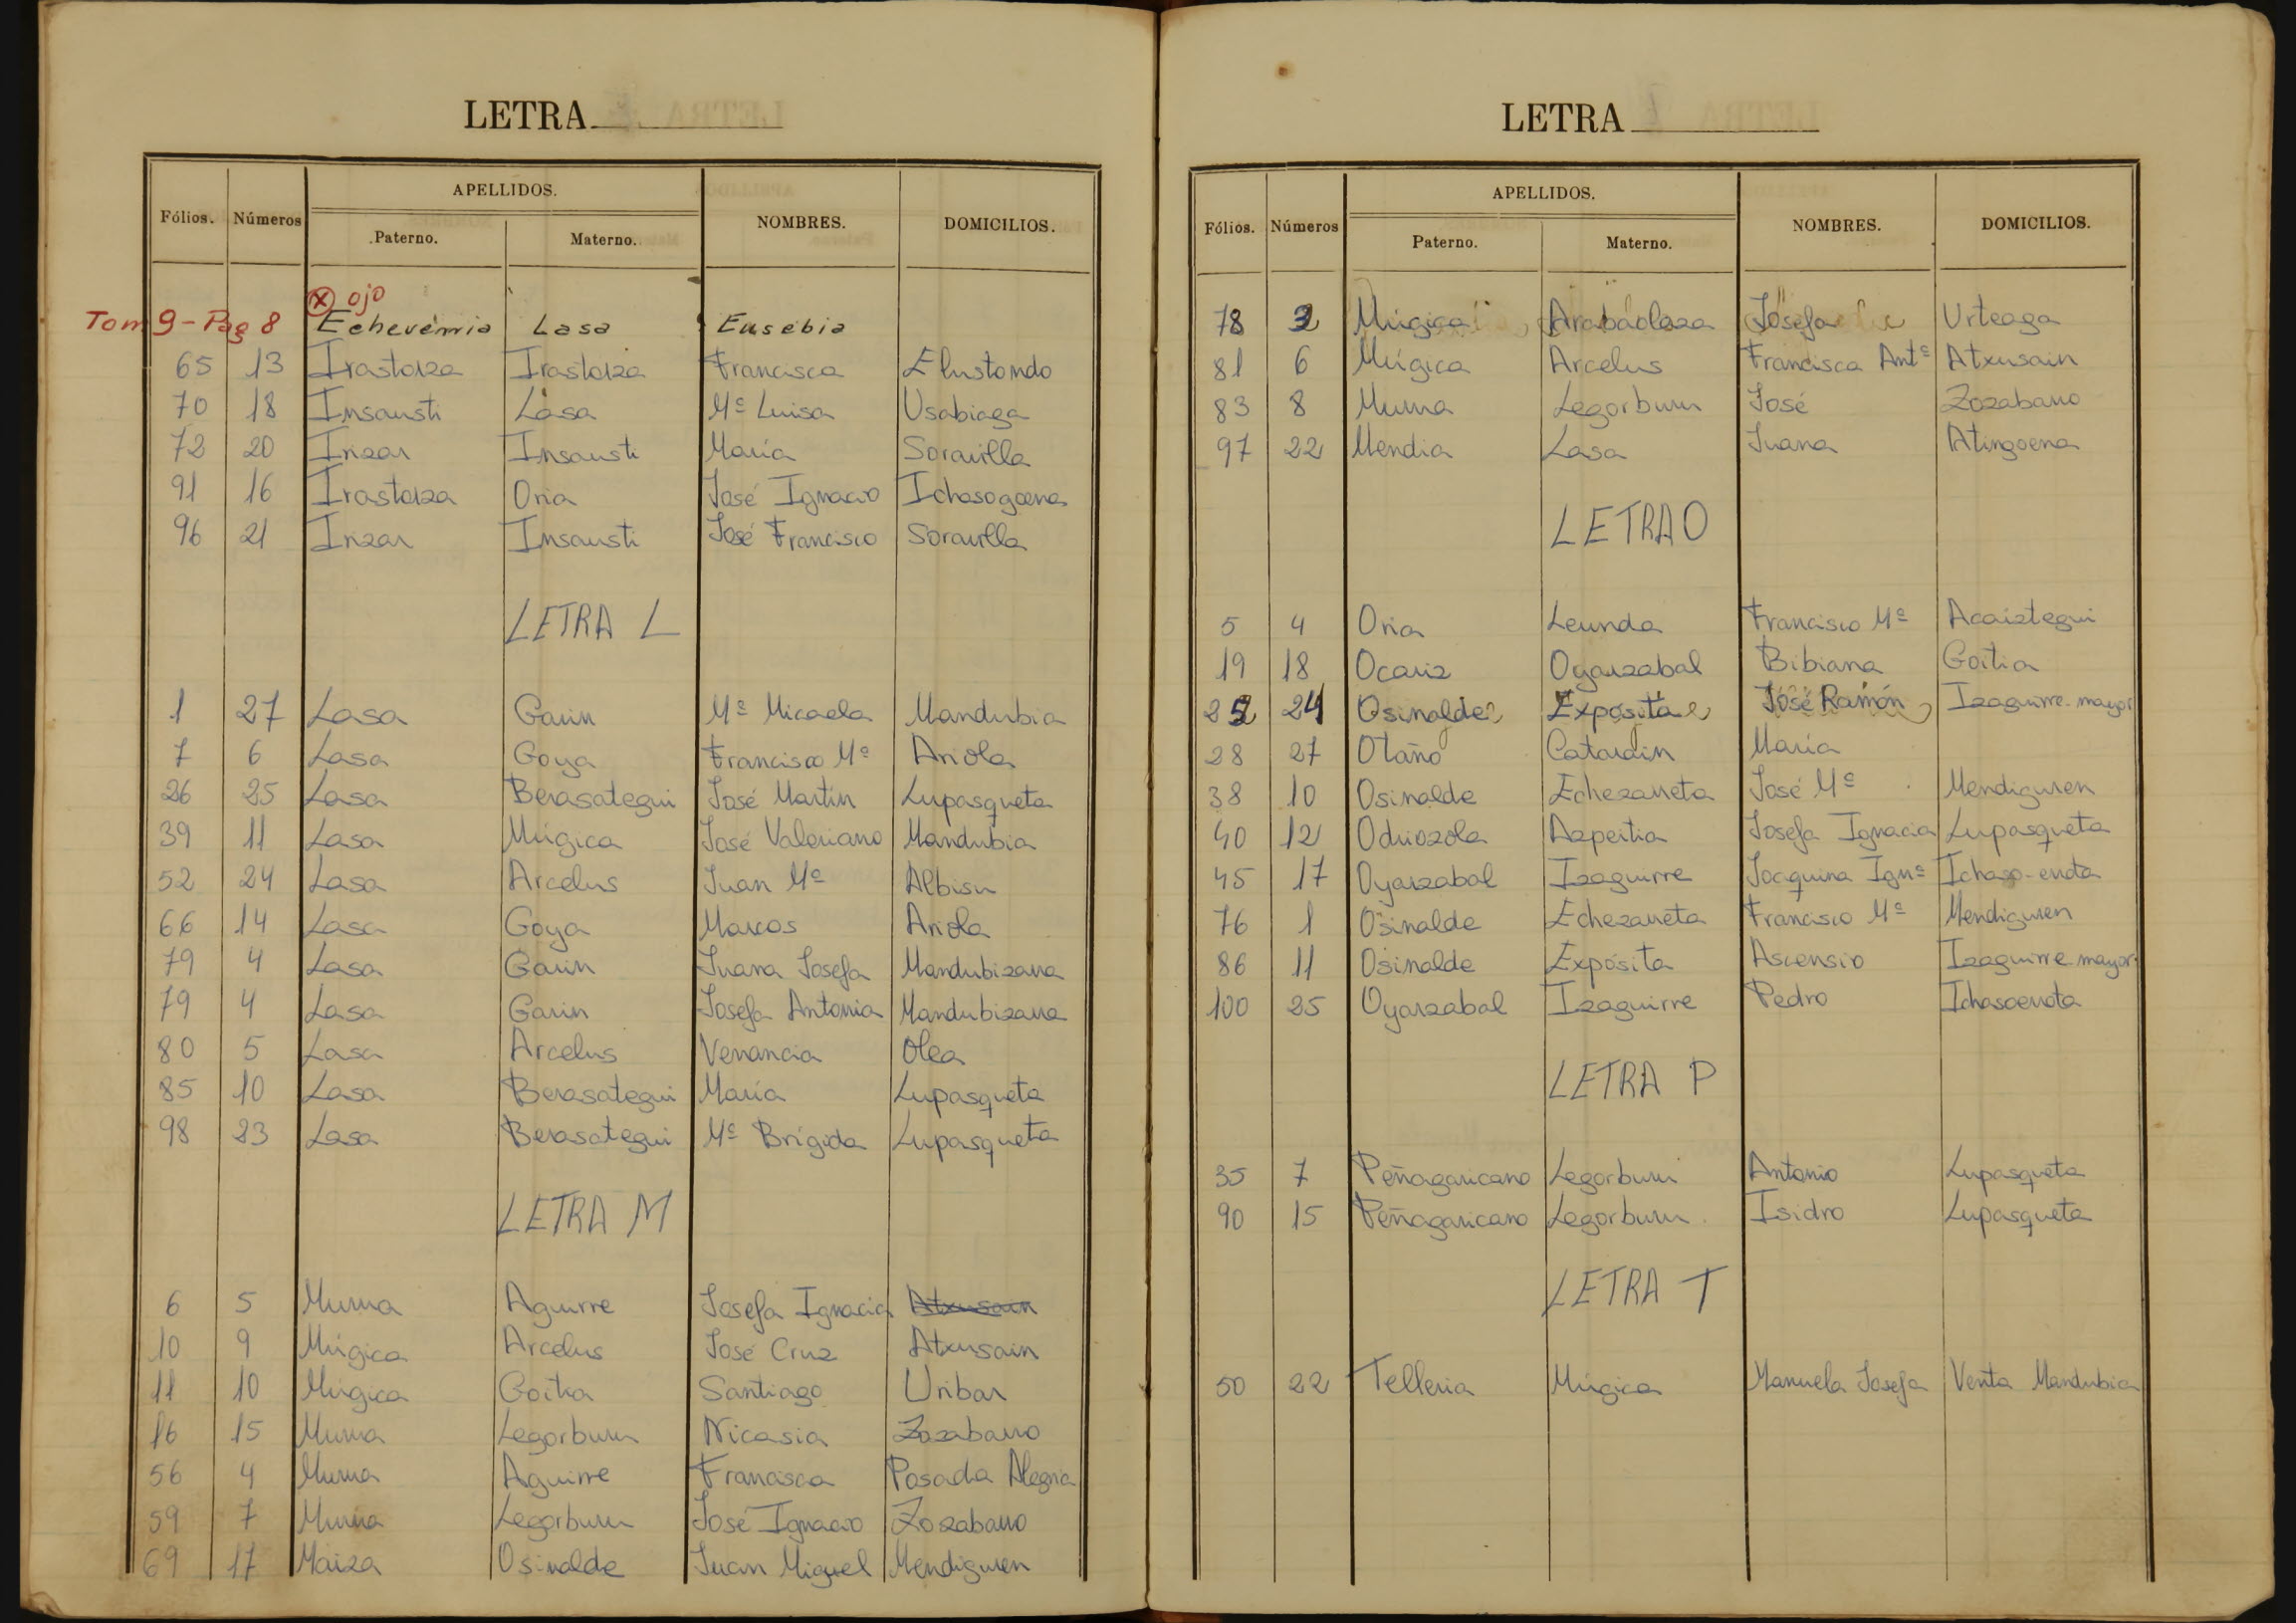 LETRA
APELLIDOS.
Fólios. Números Paterno. Materno. NOMBRES. DOMICILIOS.
ⓧ ojo
Tom 9 - Pag 8 Echeverria Lasa Eusebia
65 13 Irastorza Irastorza Francisca Elustondo
70 18 Insausti Lasa Mª Luisa Usabiaga
72 20 Irizar Insausti María Soraurlla
91 16 Irastorza Oria José Ignacio Ichasogoena
96 21 Irizar Insausti José Francisco Soraurlla
LETRA L
1 27 Lasa Garin Mª Micaela Mandubia
7 6 Lasa Goya Francisco Mª Ariola
26 25 Lasa Berasategui José Martín Lupasqueta
39 11 Lasa Múgica José Valeriano Mandubia
52 24 Lasa Arcelus Juan Mª Albisu
66 14 Lasa Goya Marcos Ariola
79 4 Lasa Garin Juana Josefa Mandubizarra
79 4 Lasa Garin Josefa Antonia Mandubizarra
80 5 Lasa Arcelus Venancia Olea
85 10 Lasa Berasategui María Lupasqueta
98 23 Lasa Berasategui Mª Brígida Lupasqueta
LETRA M
6 5 Murua Aguirre Josefa Ignacia Atxusain
10 9 Múgica Arcelus José Cruz Atxusain
11 10 Múgica Goitia Santiago Uribar
16 15 Murua Legorburu Nicasia Zozabarro
56 4 Murua Aguirre Francisca Posada Alegria
59 7 Murua Legorburu José Ignacio Zozabarro
69 17 Maiza Osinalde Juan Miguel Mendiguren
LETRA
APELLIDOS.
Fólios. Números Paterno. Materno. NOMBRES. DOMICILIOS.
78 3 Múgica Arabaolaza Josefa Urteaga
81 6 Múgica Arcelus Francisca Antª Atxusain
83 8 Murua Legorburu José Zozabarro
97 22 Mendia Lasa Juana Atingoena
LETRA O
5 4 Oria Leunda Francisco Mª Acaiztegui
19 18 Ocariz Oyarzabal Bibiana Goitia
25 24 Osinalde Expósita José Ramón Izaguirre-mayor
28 27 Otaño Catarain María
38 10 Osinalde Echezarreta José Mª Mendiguren
40 12 Odriozola Azpeitia Josefa Ignacia Lupasqueta
45 17 Oyarzabal Izaguirre Joaquina Ignª Ichaso-errota
76 1 Osinalde Echezarreta Francisco Mª Mendiguren
86 11 Osinalde Expósita Ascensio Izaguirre mayor
100 25 Oyarzabal Izaguirre Pedro Ichasoerrota
LETRA P
35 7 Peñagaricano Legorburu Antonio Lupasqueta
90 15 Peñagaricano Legorburu Isidro Lupasqueta
LETRA T
50 22 Telleria Múgica Manuela Josefa Venta Mandubia